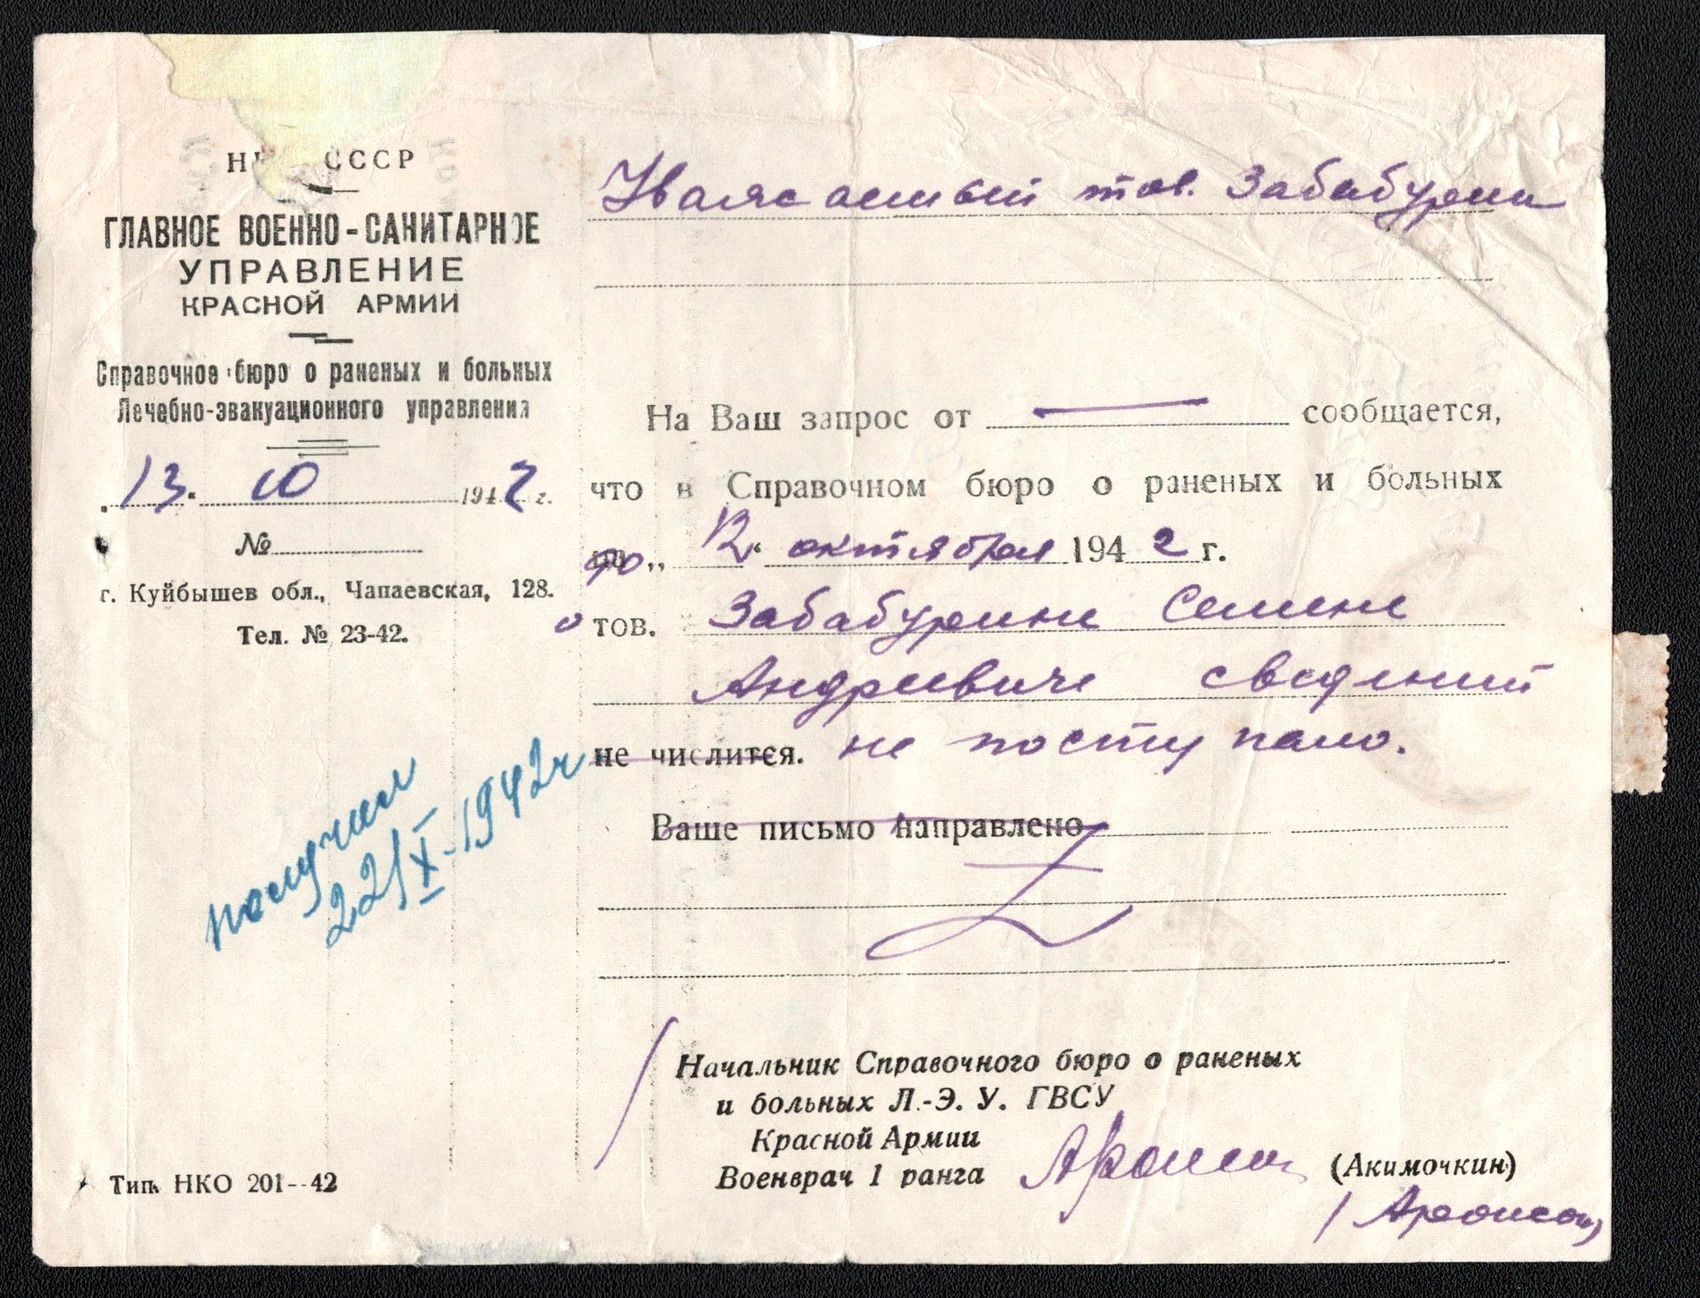 СССР
ГЛАВНОЕ ВОЕННО-САНИТАРНОЕ
УПРАВЛЕНИЕ
КРАСНОЙ АРМИИ
Справочное бюро о раненых и больных
Лечебно-эвакуационного управления
13. 10 1942 г.
№
г. Куйбышев обл., Чапаевская, 128.
Тел. № 23-42.
Уважаемый тов. Забабурин
На Ваш запрос от — сообщается,
что в Справочном бюро о раненых и больных
до „ 12 " октября 1942 г.
о тов. Забабурине Семене
Андреевиче сведений
не числится. не поступало.
Ваше письмо направлено
получил
22/X-1942г
Начальник Справочного бюро о раненых
и больных Л.-Э. У. ГВСУ
Красной Армии
Военврач 1 ранга Аронсон (Акимочкин)
/Аронсон/
Тип. НКО 201--42